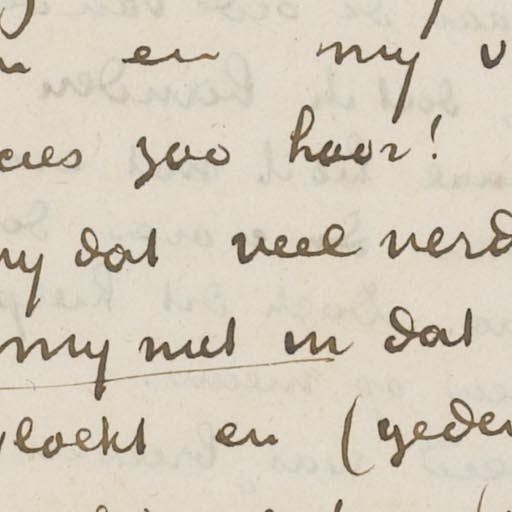 en my
zoo hoor!
my dat veel verd
my niet in dat
vloekt en (geden